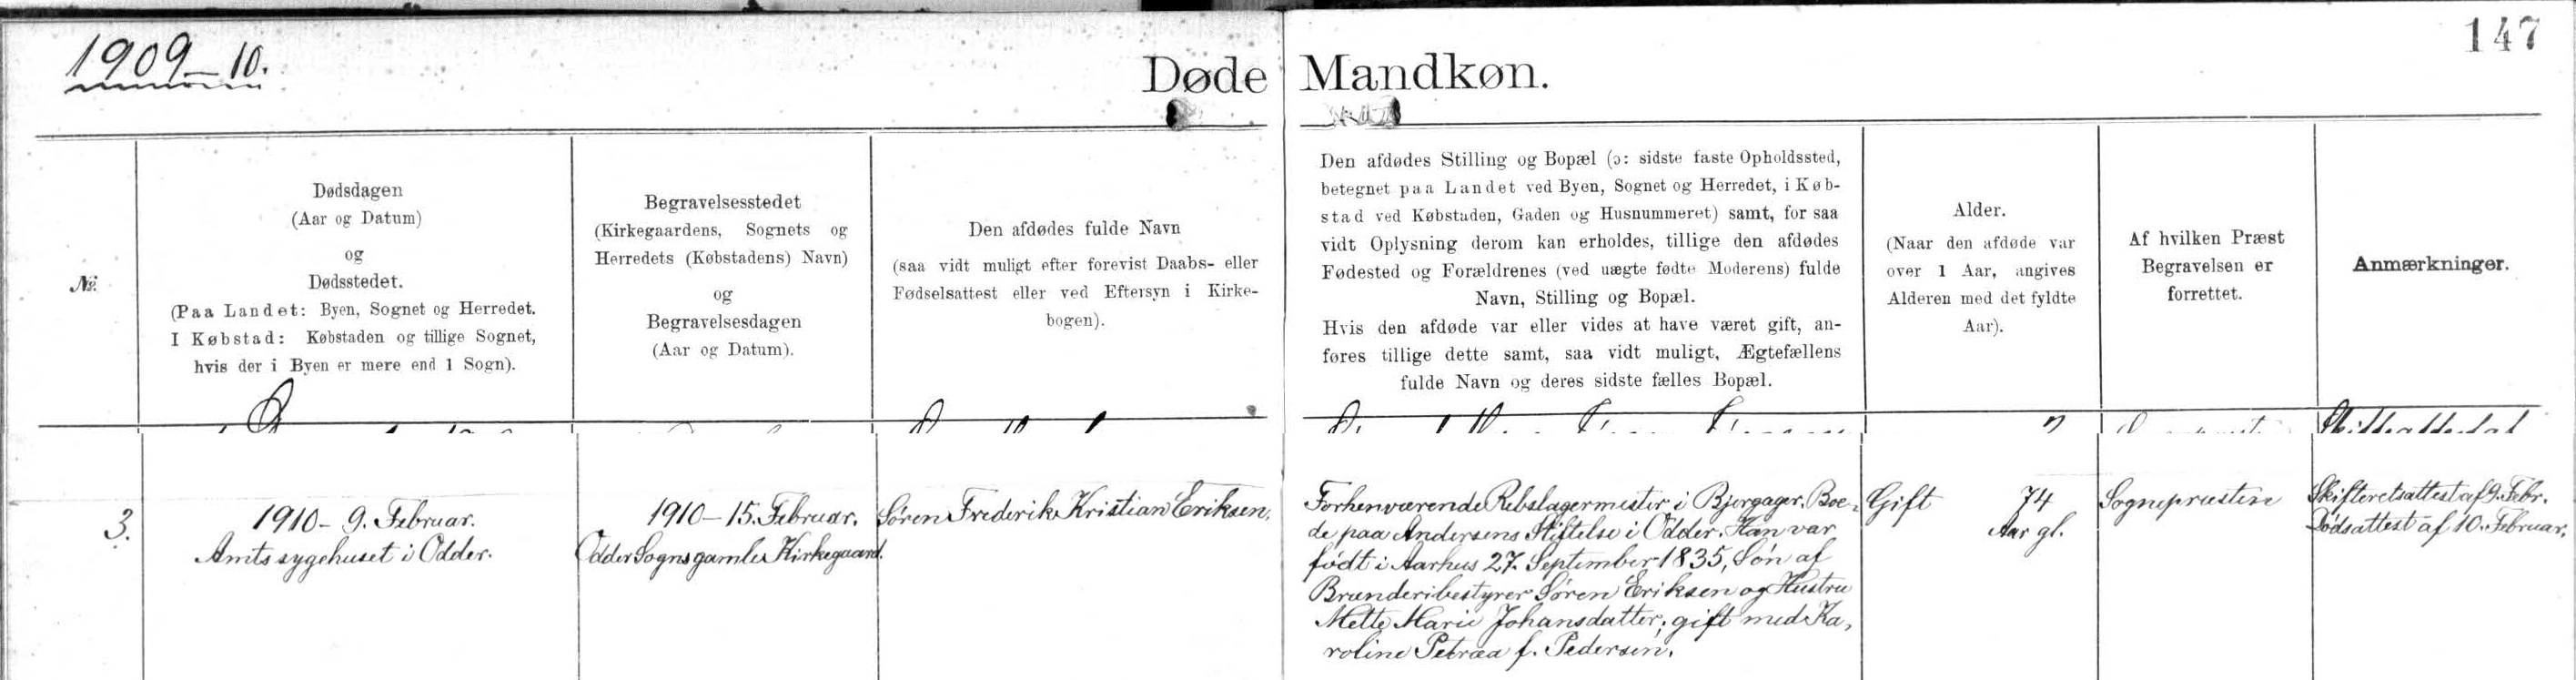 1909-10.
147
Døde Mandkøn.
№.
Dødsdagen
(Aar og Datum)
og
Dødsstedet.
(Paa Landet: Byen, Sognet og Herredet.
I Købstad: Købstaden og tillige Sognet,
hvis der i Byen er mere end 1 Sogn).
Begravelsesstedet
(Kirkegaardens, Sognets og
Herredets (Købstadens) Navn)
og
Begravelsesdagen
(Aar og Datum).
Den afdødes fulde Navn
(saa vidt muligt efter forevist Daabs- eller
Fødselsattest eller ved Eftersyn i Kirke-
bogen).
Den afdødes Stilling og Bopæl (ɔ: sidste faste Opholdssted,
betegnet paa Landet ved Byen, Sognet og Herredet, i Køb-
stad ved Købstaden, Gaden og Husnummeret) samt, for saa
vidt Oplysning derom kan erholdes, tillige den afdødes
Fødested og Forældrenes (ved uægte fødte Moderens) fulde
Navn, Stilling og Bopæl.
Hvis den afdøde var eller vides at have været gift, an-
føres tillige dette samt, saa vidt muligt, Ægtefællens
fulde Navn og deres sidste fælles Bopæl.
Alder.
(Naar den afdøde var
over 1 Aar, angives
Alderen med det fyldte
Aar).
Af hvilken Præst
Begravelsen er
forrettet.
Anmærkninger.
3.
1910 - 9. Februar.
Amtssygehuset i Odder.
1910 - 15. Februar.
Odder Sogns gamle Kirkegaard.
Søren Frederik Kristian Eriksen.
Forhenværende Rebslagermester i Bjergager. Boe-
de paa Andersens Stiftelse i Odder. Han var
født i Aarhus 27. September 1835, Søn af
Brænderibestyrer Søren Eriksen og Hustru
Mette Marie Johansdatter; gift med Ka-
roline Petræa f. Pedersen.
Gift 74
Aar gl.
Sognepræsten
Skifteretsattest af 9. Febr.
Dødsattest af 10. Februar.